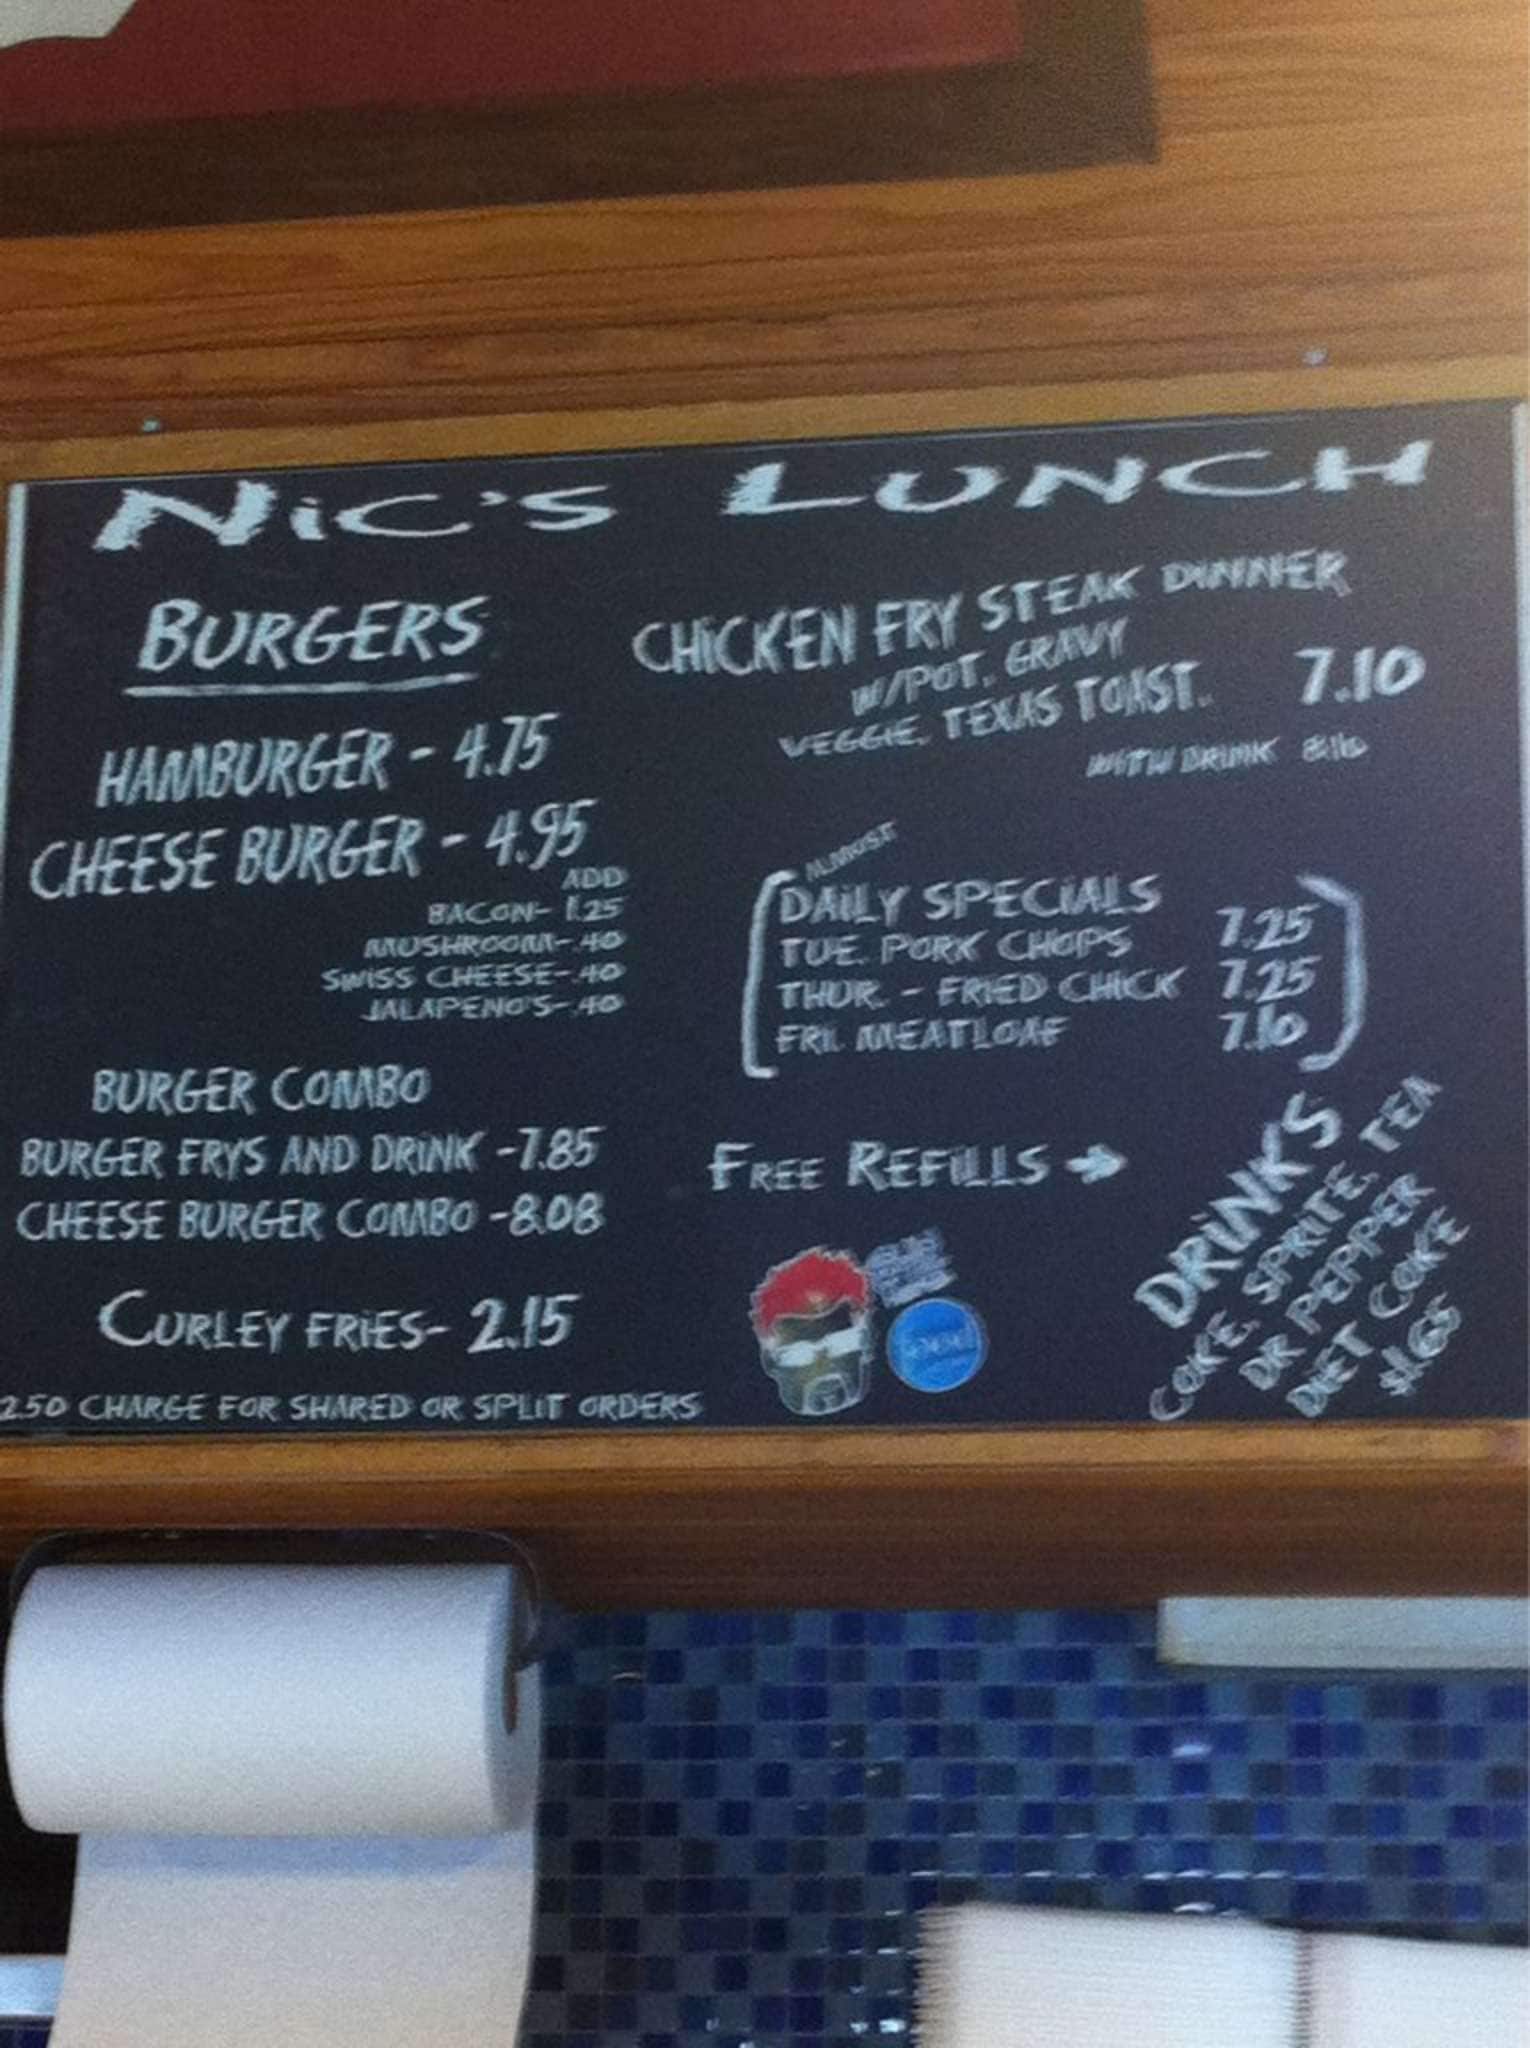 NiC'S LUNCH
BURGERS
HAMBURGER - 4.75
CHEESE BURGER - 4.95
ADD
BACON- 1.25
MUSHROOM- .40
SWISS CHEESE- .40
JALAPENO'S- .40
BURGER COMBO
BURGER FRYS AND DRiNK -7.85
CHEESE BURGER COMBO -8.08
CURLEY FRiES- 2.15
2.50 CHARGE FOR SHARED OR SPLIT ORDERS
CHiCKEN FRY STEAK DINNER
W/POT. GRAVY
VEGGIE. TEXAS TOAST. 7.10
WITH DRINK 8.10
ALMOST
DAiLY SPECIALS
TUE. PORK CHOPS 7.25
THUR. - FRIED CHICK 7.25
FRI. MEATLOAF 7.10
FREE REFILLS →
DRiNKS
COKE, SPRITE, TEA
DR PEPPER
DIET COKE
$1.65